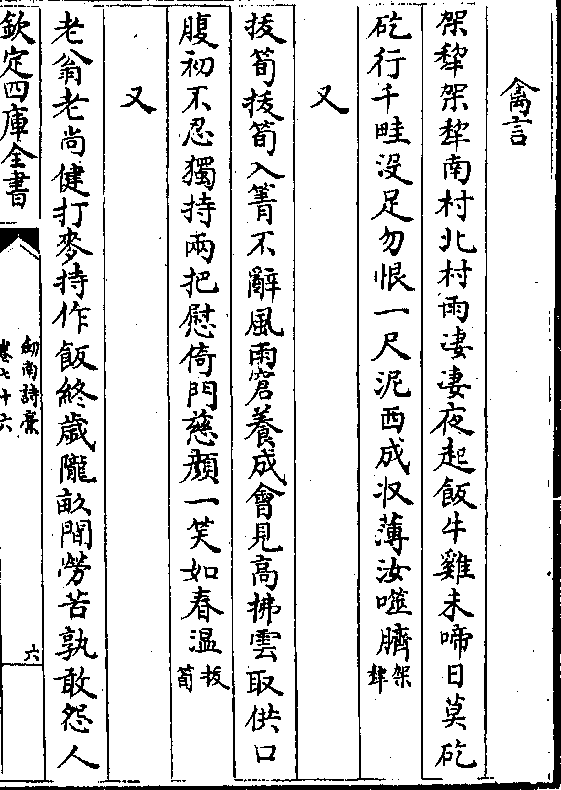 禽言
架犂架犂南村北村雨凄凄夜起飯牛雞未啼日莫矻
矻行千畦没足勿恨一尺泥西成収薄汝噬臍架犂
又
拔筍拔筍入箐不辭風雨窘養成會見高拂雲取供口
腹初不忍獨持兩把慰倚門慈顔一笑如春温拔筍
又
老翁老尚健打麥持作飯終歲隴畝間勞苦孰敢怨人
欽定四庫全書
劒南詩稾
卷七十六
六